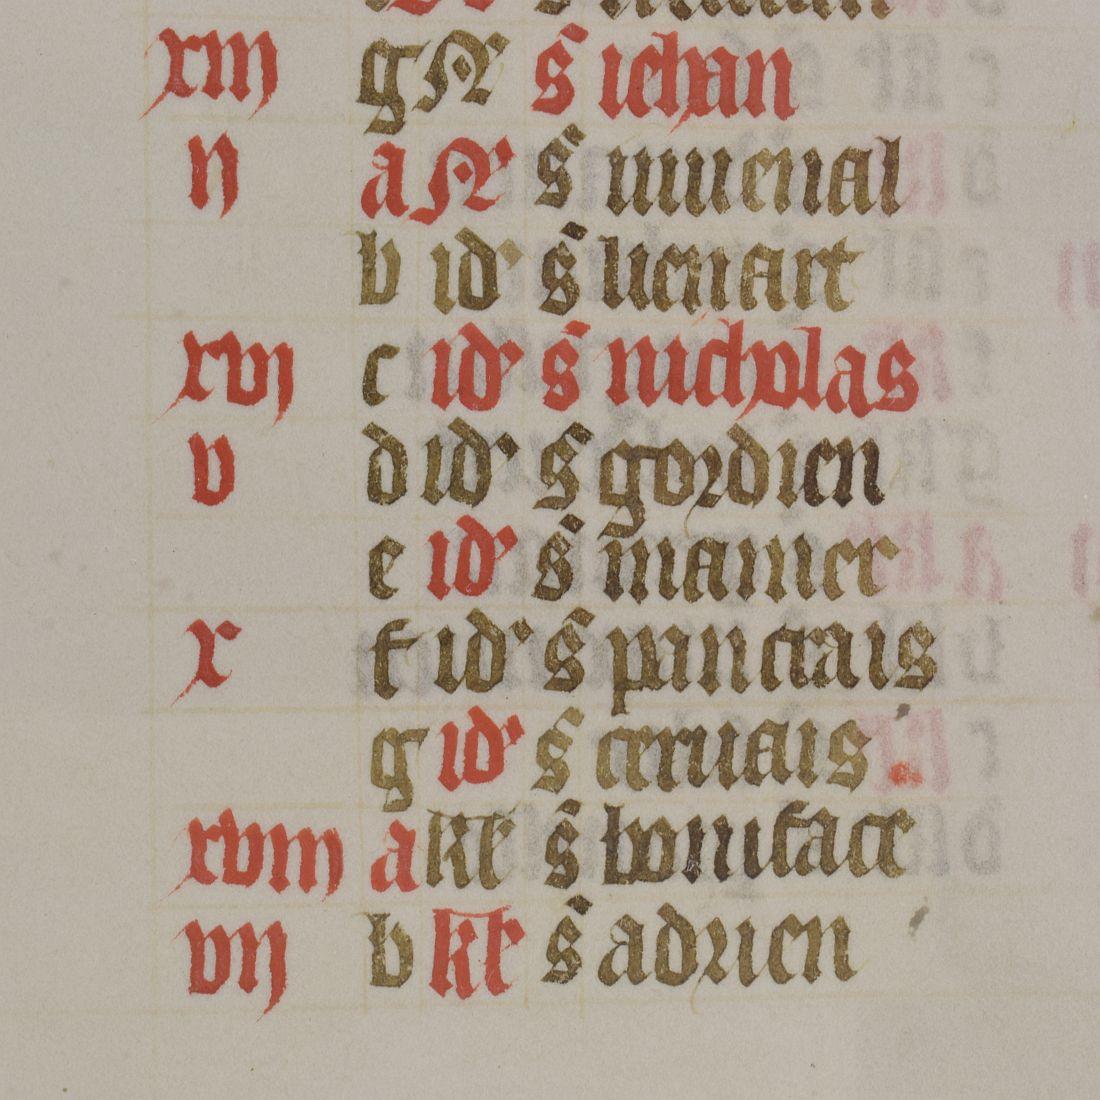 xiii g N s iehan
ii a N s iuuenal
b id s lienart
xvi c id s nicholas
v d id s gordien
e id s mamer
x f id s pancrais
g id s ceruais
xviii a kl s boniface
vii b kl s adrien